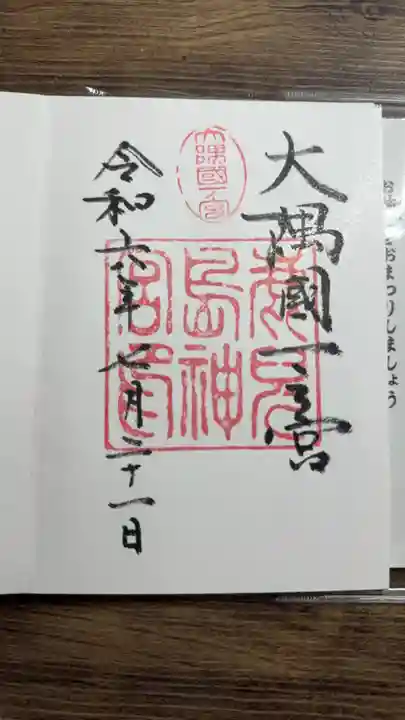 大隅國一之宮
大隅國一宮
鹿兒
島神
宮印
令和六年七月二十一日
おまつりしましょう